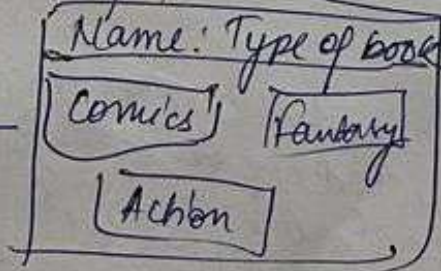 Name: Type of book
Comics Fantasy
Action